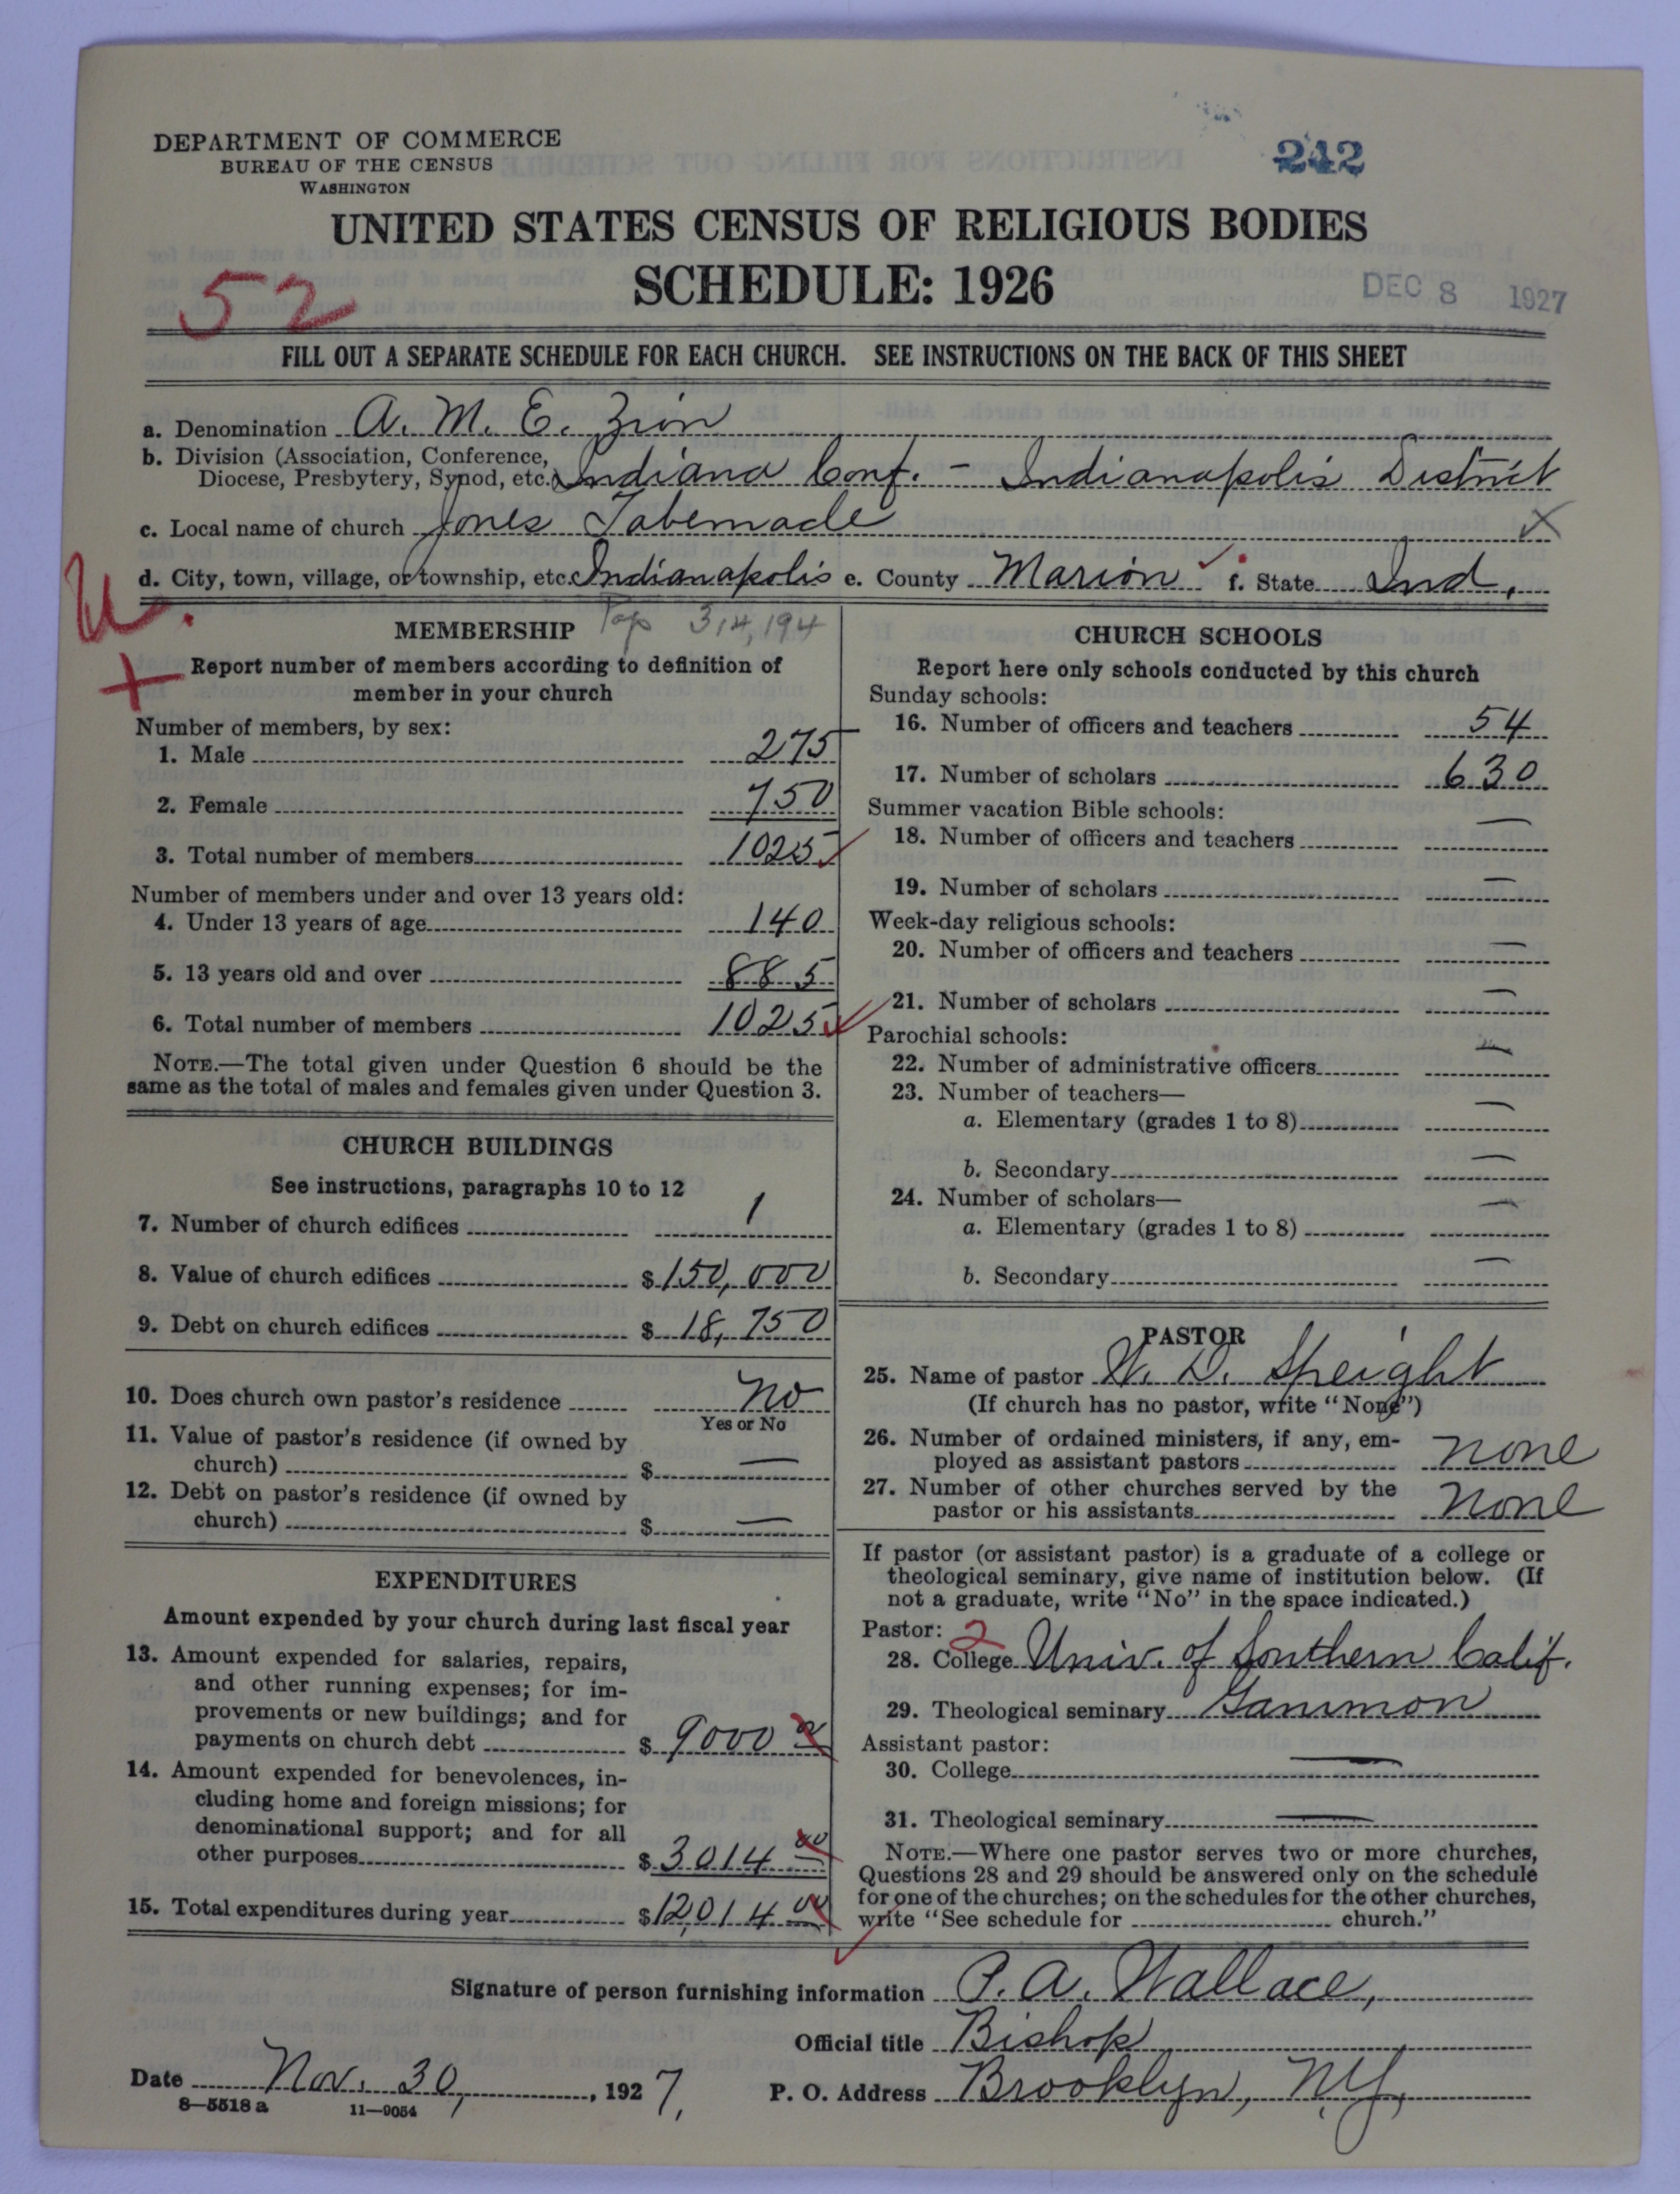 DEPARTMENT OF COMMERCE
BUREAU OF THE CENSUS
WASHINGTON
242
UNITED STATES CENSUS OF RELIGIOUS BODIES
SCHEDULE: 1926
52
DEC 8 1927
FILL OUT A SEPARATE SCHEDULE FOR EACH CHURCH. SEE INSTRUCTIONS ON THE BACK OF THIS SHEET
a. Denomination A. M. E. Zion
b. Division (Association, Conference,
Diocese, Presbytery, Synod, etc.) Indiana Conf. - Indianapolis District
c. Local name of church Jones Tabernacle X
d. City, town, village, or township, etc. Indianapolis e. County Marion f. State Ind.
U.
MEMBERSHIP Pop 314,194
+ Report number of members according to definition of
member in your church
Number of members, by sex:
1. Male 275
2. Female 750
3. Total number of members 1025
Number of members under and over 13 years old:
4. Under 13 years of age 140
5. 13 years old and over 885
6. Total number of members 1025
NOTE.—The total given under Question 6 should be the
same as the total of males and females given under Question 3.
CHURCH BUILDINGS
See instructions, paragraphs 10 to 12
7. Number of church edifices 1
8. Value of church edifices $150,000
9. Debt on church edifices $18,750
10. Does church own pastor's residence No
Yes or No
11. Value of pastor's residence (if owned by
church) $ —
12. Debt on pastor's residence (if owned by
church) $ —
EXPENDITURES
Amount expended by your church during last fiscal year
13. Amount expended for salaries, repairs,
and other running expenses; for im-
provements or new buildings; and for
payments on church debt $9000 00
14. Amount expended for benevolences, in-
cluding home and foreign missions; for
denominational support; and for all
other purposes $3014 00
15. Total expenditures during year $12,014 00
CHURCH SCHOOLS
Report here only schools conducted by this church
Sunday schools:
16. Number of officers and teachers 54
17. Number of scholars 630
Summer vacation Bible schools:
18. Number of officers and teachers —
19. Number of scholars —
Week-day religious schools:
20. Number of officers and teachers —
21. Number of scholars —
Parochial schools:
22. Number of administrative officers —
23. Number of teachers—
a. Elementary (grades 1 to 8) —
b. Secondary —
24. Number of scholars—
a. Elementary (grades 1 to 8) —
b. Secondary —
PASTOR
25. Name of pastor W. D. Speight
(If church has no pastor, write "None")
26. Number of ordained ministers, if any, em-
ployed as assistant pastors none
27. Number of other churches served by the
pastor or his assistants none
If pastor (or assistant pastor) is a graduate of a college or
theological seminary, give name of institution below. (If
not a graduate, write "No" in the space indicated.)
Pastor: 2
28. College Univ. of Southern Calif.
29. Theological seminary Gammon
Assistant pastor:
30. College —
31. Theological seminary —
NOTE.—Where one pastor serves two or more churches,
Questions 28 and 29 should be answered only on the schedule
for one of the churches; on the schedules for the other churches,
write "See schedule for church."
Signature of person furnishing information P. A. Wallace,
Official title Bishop
Date Nov. 30, 1927. P. O. Address Brooklyn, N.Y.
8—5518 a 11—9054